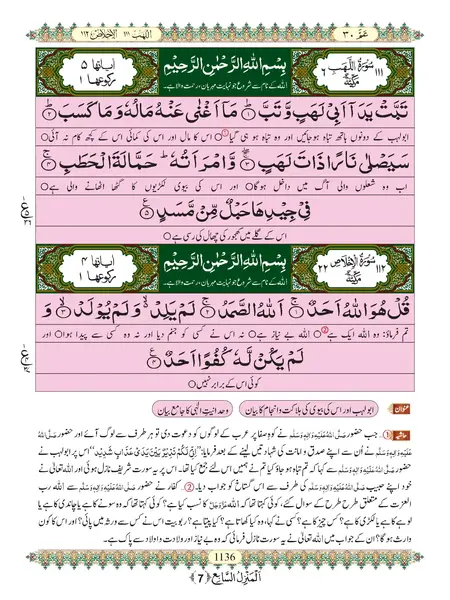 عم ٣٠
الاخلاص ١١٢ اللهب ١١١
١١١ سُوْرَةُ اللَّهَب مَكِّيَّة ٦
بِسْمِ اللّٰهِ الرَّحْمٰنِ الرَّحِيْمِ
اللہ کے نام سے شروع جو نہایت مہربان، رحمت والا ہے۔
اٰیاتها ٥ رکوعها ١
تَبَّتْ يَدَاۤ اَبِيْ لَهَبٍ وَّ تَبَّ ۝١ مَاۤ اَغْنٰى عَنْهُ مَالُهٗ وَ مَا كَسَبَ ۝٢
ابولہب کے دونوں ہاتھ تباہ ہوجائیں اور وہ تباہ ہو ہی گیا ① اس کا مال اور اس کی کمائی اس کے کچھ کام نہ آئی
سَيَصْلٰى نَارًا ذَاتَ لَهَبٍ ۝٣ وَّ امْرَاَتُهٗ حَمَّالَةَ الْحَطَبِ ۝٤
اب وہ شعلوں والی آگ میں داخل ہوگا اور اس کی بیوی لکڑیوں کا گٹھا اٹھانے والی ہے
فِيْ جِيْدِهَا حَبْلٌ مِّنْ مَّسَدٍ ۝٥
اس کے گلے میں کھجور کی چھال کی رسی ہے
١١٢ سُوْرَةُ الْاِخْلَاص مَكِّيَّة ٢٢
بِسْمِ اللّٰهِ الرَّحْمٰنِ الرَّحِيْمِ
اللہ کے نام سے شروع جو نہایت مہربان، رحمت والا ہے۔
اٰیاتها ٤ رکوعها ١
قُلْ هُوَ اللّٰهُ اَحَدٌ ۝١ اَللّٰهُ الصَّمَدُ ۝٢ لَمْ يَلِدْ وَ لَمْ يُوْلَدْ ۝٣ وَ
تم فرماؤ: وہ اللہ ایک ہے ② اللہ بے نیاز ہے نہ اس نے کسی کو جنم دیا اور نہ وہ کسی سے پیدا ہوا اور
لَمْ يَكُنْ لَّهٗ كُفُوًا اَحَدٌ ۝٤
کوئی اس کے برابر نہیں
عنوان ابولہب اور اس کی بیوی کی ہلاکت و انجام کا بیان وحدانیتِ الٰہی کا جامع بیان
حاشیہ ① جب حضور صَلَّی اللہُ عَلَیْہِ وَاٰلِہٖ وَسَلَّم نے کوہِ صفا پر عرب کے لوگوں کو دعوت دی تو ہر طرف سے لوگ آئے اور حضور صَلَّی اللہُ
عَلَیْہِ وَاٰلِہٖ وَسَلَّم نے اُن سے اپنے صدق و امانت کی شہادتیں لینے کے بعد فرمایا: ”اِنِّی لَکُمْ نَذِیْرٌ بَیْنَ یَدَیْ عَذَابٍ شَدِیْدٍ“ اس پر ابولہب نے
حضور صَلَّی اللہُ عَلَیْہِ وَاٰلِہٖ وَسَلَّم سے کہا کہ تم تباہ ہو جاؤ کیا تم نے ہمیں اس لئے جمع کیا تھا۔ اس پر یہ سورت شریف نازل ہوئی اور اللہ تعالیٰ نے
خود اپنے حبیب صَلَّی اللہُ عَلَیْہِ وَاٰلِہٖ وَسَلَّم کی طرف سے اس گستاخ کو جواب دیا۔ ② کفار نے حضور صَلَّی اللہُ عَلَیْہِ وَاٰلِہٖ وَسَلَّم سے اللہ رب
العزت کے متعلق طرح طرح کے سوال کئے، کوئی کہتا تھا کہ اللہ عَزَّوَجَلَّ کا نسب کیا ہے؟ کوئی کہتا تھا کہ وہ سونے کا ہے یا چاندی کا ہے یا
لوہے کا ہے یا لکڑی کا ہے؟ کس چیز کا ہے؟ کسی نے کہا، وہ کیا کھاتا ہے؟ کیا پیتا ہے؟ ربوبیت اس نے کس سے ورثہ میں پائی؟ اور اس کا کون
وارث ہوگا؟ ان کے جواب میں اللہ تعالیٰ نے یہ سورت نازل فرمائی کہ وہ بے نیاز اور ولادت و اولاد سے پاک ہے۔
1136
اَلْمَنْزِلُ السَّابِع ﴿7﴾